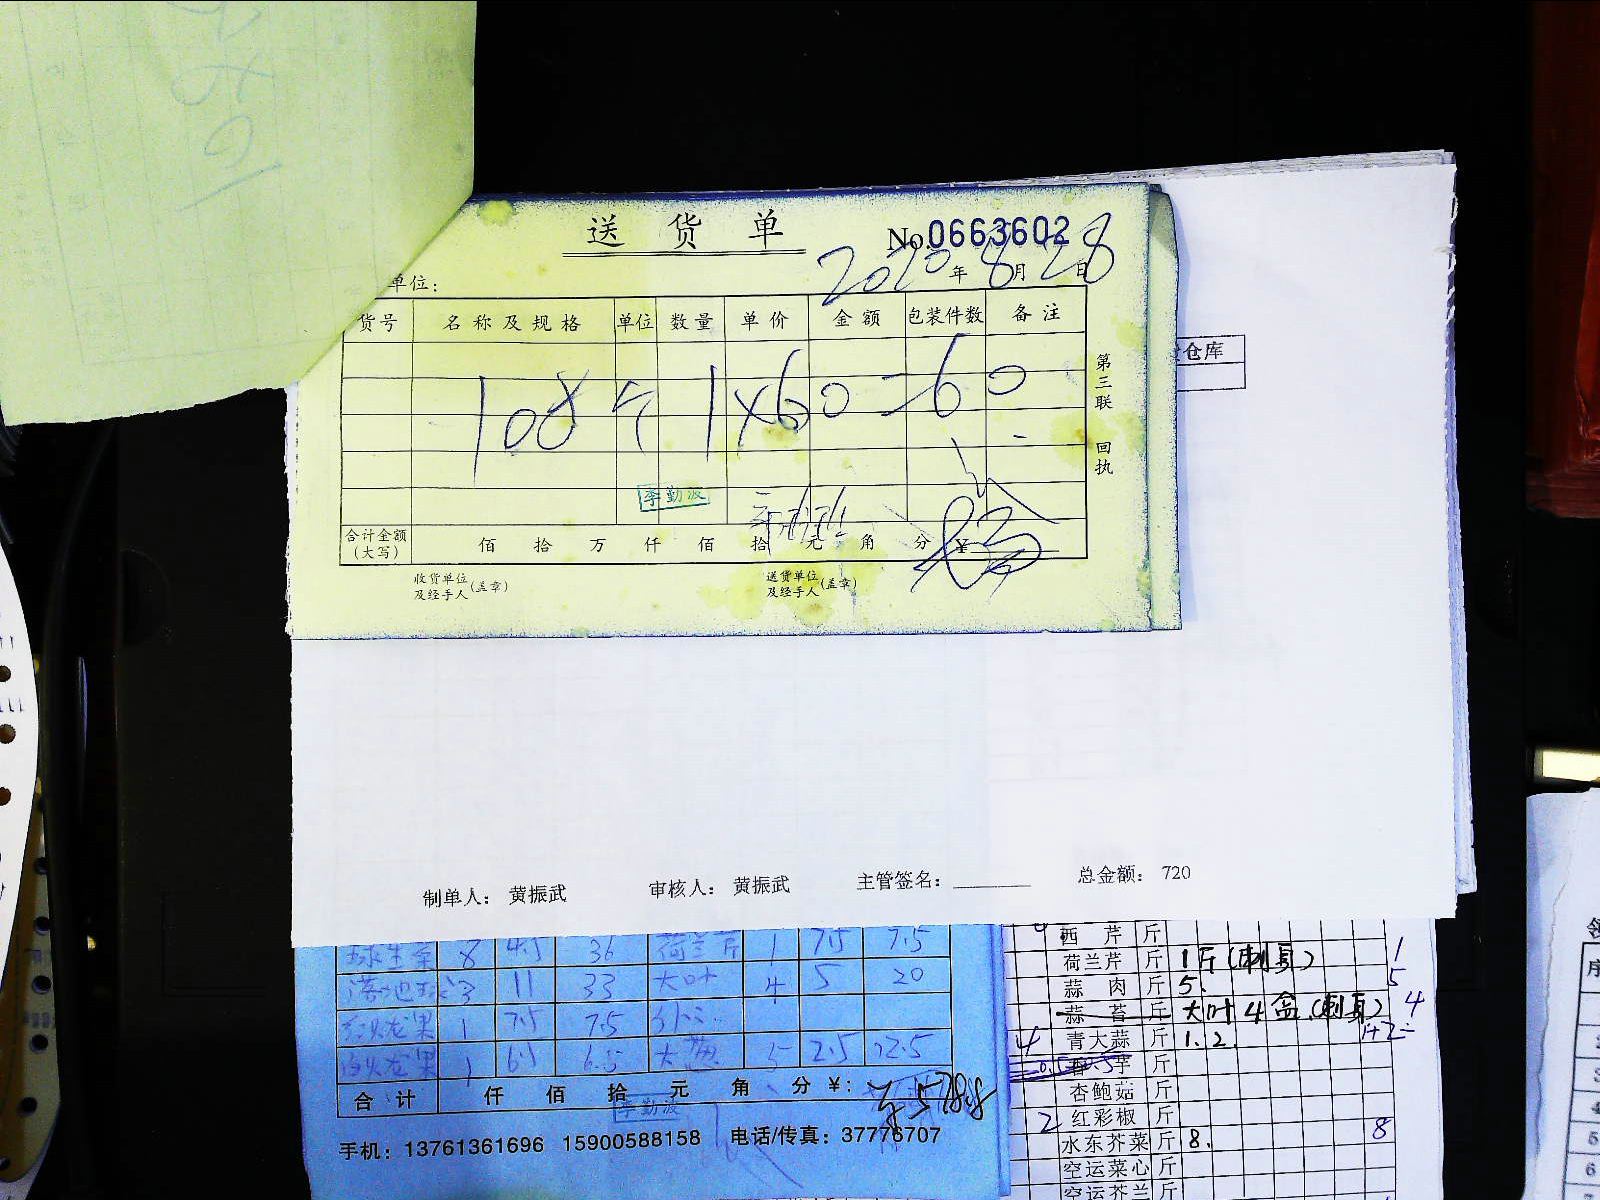 送货单 No.0663602
2020年8月28日
单位：
货号 名称及规格 单位 数量 单价 金额 包装件数 备注
108 1×60=60
第三联 回执
李勤波
合计金额(大写) 佰 拾 万 仟 佰 拾 元 角 分 ¥
收货单位及经手人(盖章) 送货单位及经手人(盖章)
仓库
制单人： 黄振武 审核人： 黄振武 主管签名： 总金额： 720
球生菜 8 4.5 36 荷兰芹 1 7.5 7.5
3 11 33 大叶 4 5 20
红火龙果 1 7.5 7.5
白火龙果 1 6.5 6.5 大葱 5 2.5 12.5
合计 仟 佰 拾 元 角 分 ¥：
李勤波
手机：13761361696 15900588158 电话/传真：37776707
西芹 斤
荷兰芹 斤 1斤(刺身) 1
蒜肉 斤 5. 5
蒜苔 斤 大叶4盒(刺身) 4
4 青大蒜 斤 1.2. 1+2=
香芋 斤
杏鲍菇 斤
2 红彩椒 斤
水东芥菜 斤 8. 8
空运菜心 斤
空运芥兰 斤